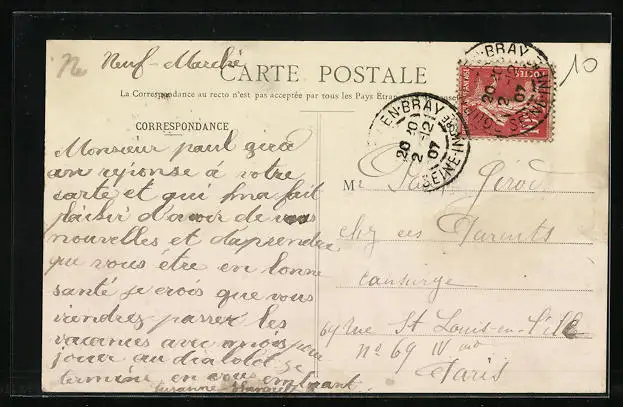 Neuf-Marché
10
CARTE POSTALE
La Correspondance au recto n'est pas acceptée par tous les Pays Etran
CORRESPONDANCE
EN-BRAY
20 2 07
SEINE-INFRE
EN-BRAY
20 12
2 07
SEINE-INFRE
Monsieur paul
en réponse à votre
carte et qui ma fait
plaisir d'avoir de vos
nouvelles et d'aprendre
que vous étre en bonne
santé je crois que vous
viendres passer les
vacances avec nous pour
jouer au diabolot je
termine en vous embrasant
Suzanne
M Paul Girod
chez ces Parents
69 Rue St Louis-en-l'ile
no 69 IV
Paris